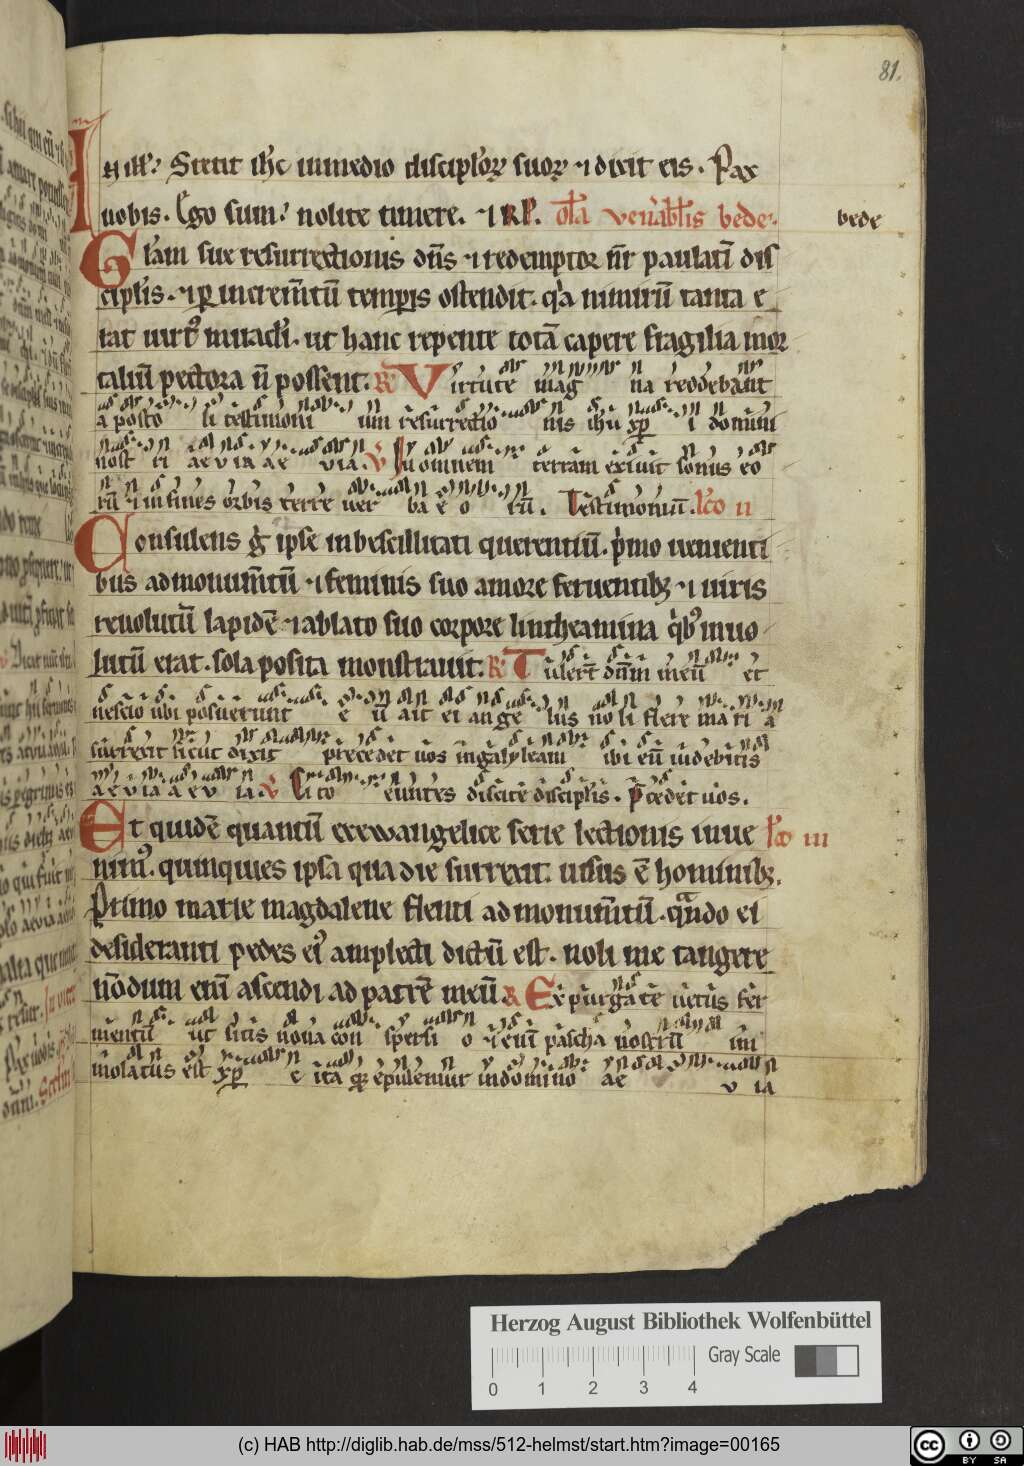 81.
In ill'. Stetit ihc in medio discipl'oꝝ suoꝝ ⁊ dixit eis. Pax
uobis. Ego sum. nolite timere. ⁊ R̅l̅. Om̅l̅a ven'abl'is bede.
bede
Gl'am sue resurrectionis dn̅s ⁊ redemptor n̅r paulati̅ dis
cipl'is. ⁊ ꝑ increm̅tu̅ temꝑis ostendit. q'a nimiru̅ tanta e
rat uirt' miracl'i. ut hanc repente tota̅ capere fragilia mor
taliu̅ pectora n̅ possent. R Virtute mag na reddebant
a posto li testimoni um resurrectio nis ihu xp̅i domini
nost ri aevia ae via. V In omnem terram exiuit sonus eo
ru̅ ⁊ in fines orbis terre uer ba e o ru̅. Testimoniu̅. Lc̅o ii
Consulens g̊ ipse inbescillitati querentiu̅. p'mo uenienti
bus ad monum̅tu̅ ⁊ feminis suo amore feruentibꝫ ⁊ uiris
reuolutu̅ lapide̅ ⁊ ablato suo corpore lintheamina q'b' inuo
lutu̅ erat. sola posita monstrauit. R Tulert̅ dn̅m meu̅ et
nescio ubi posuerunt e u̅ ait ei ange lus noli flere maria
surrexit sicut dixit precedet uos in galyleam ibi eu̅ uidebitis
aevia aev ia. V Cito euntes dicite discipl'is. P̅cedet uos.
Et quide̅ quantu̅ ex ewangelice serie lectionis inue Lc̅o iii
nim'. quinquies ipsa qua die surrexit. uisus e̅ hominibꝫ.
Primo marie magdalene flenti ad monum̅tu̅. qn̅do ei
desideranti pedes ei' amplecti dictu̅ est. noli me tangere
no̅dum eni̅ ascendi ad patre̅ meu̅. R Expurgate uetus fer
mentu̅ ut sitis noua con spersi o ⁊ eni̅ pascha nostru̅ im
molatus est xp̅c ita qꝫ epulemur in domino ae v ia
Herzog August Bibliothek Wolfenbüttel
Gray Scale
0 1 2 3 4
(c) HAB http://diglib.hab.de/mss/512-helmst/start.htm?image=00165
cc BY SA